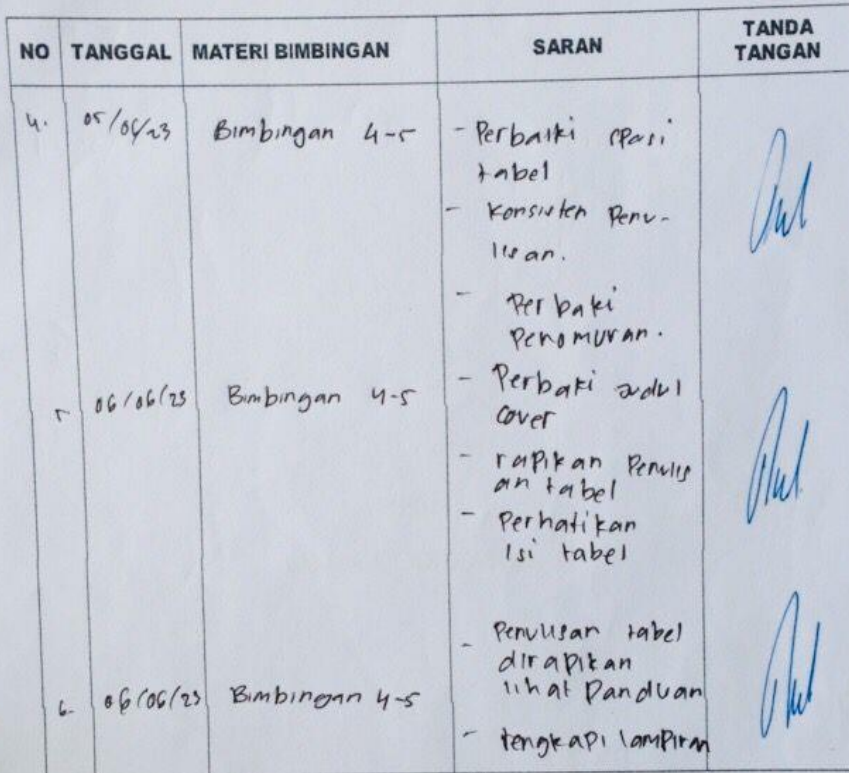 NO TANGGAL MATERI BIMBINGAN SARAN TANDA TANGAN
4. 05/06/23 Bimbingan 4-5 - Perbaiki spasi
tabel
- Konsisten Penu-
lisan.
- Perbaki
Penomuran.
5 06/06/23 Bimbingan 4-5 - Perbaki Judul
Cover
- rapikan Penulis
an tabel
- Perhatikan
Isi tabel
- Penulisan tabel
dirapikan
lihat Panduan
6. 06/06/23 Bimbingan 4-5
- lengkapi lampiran